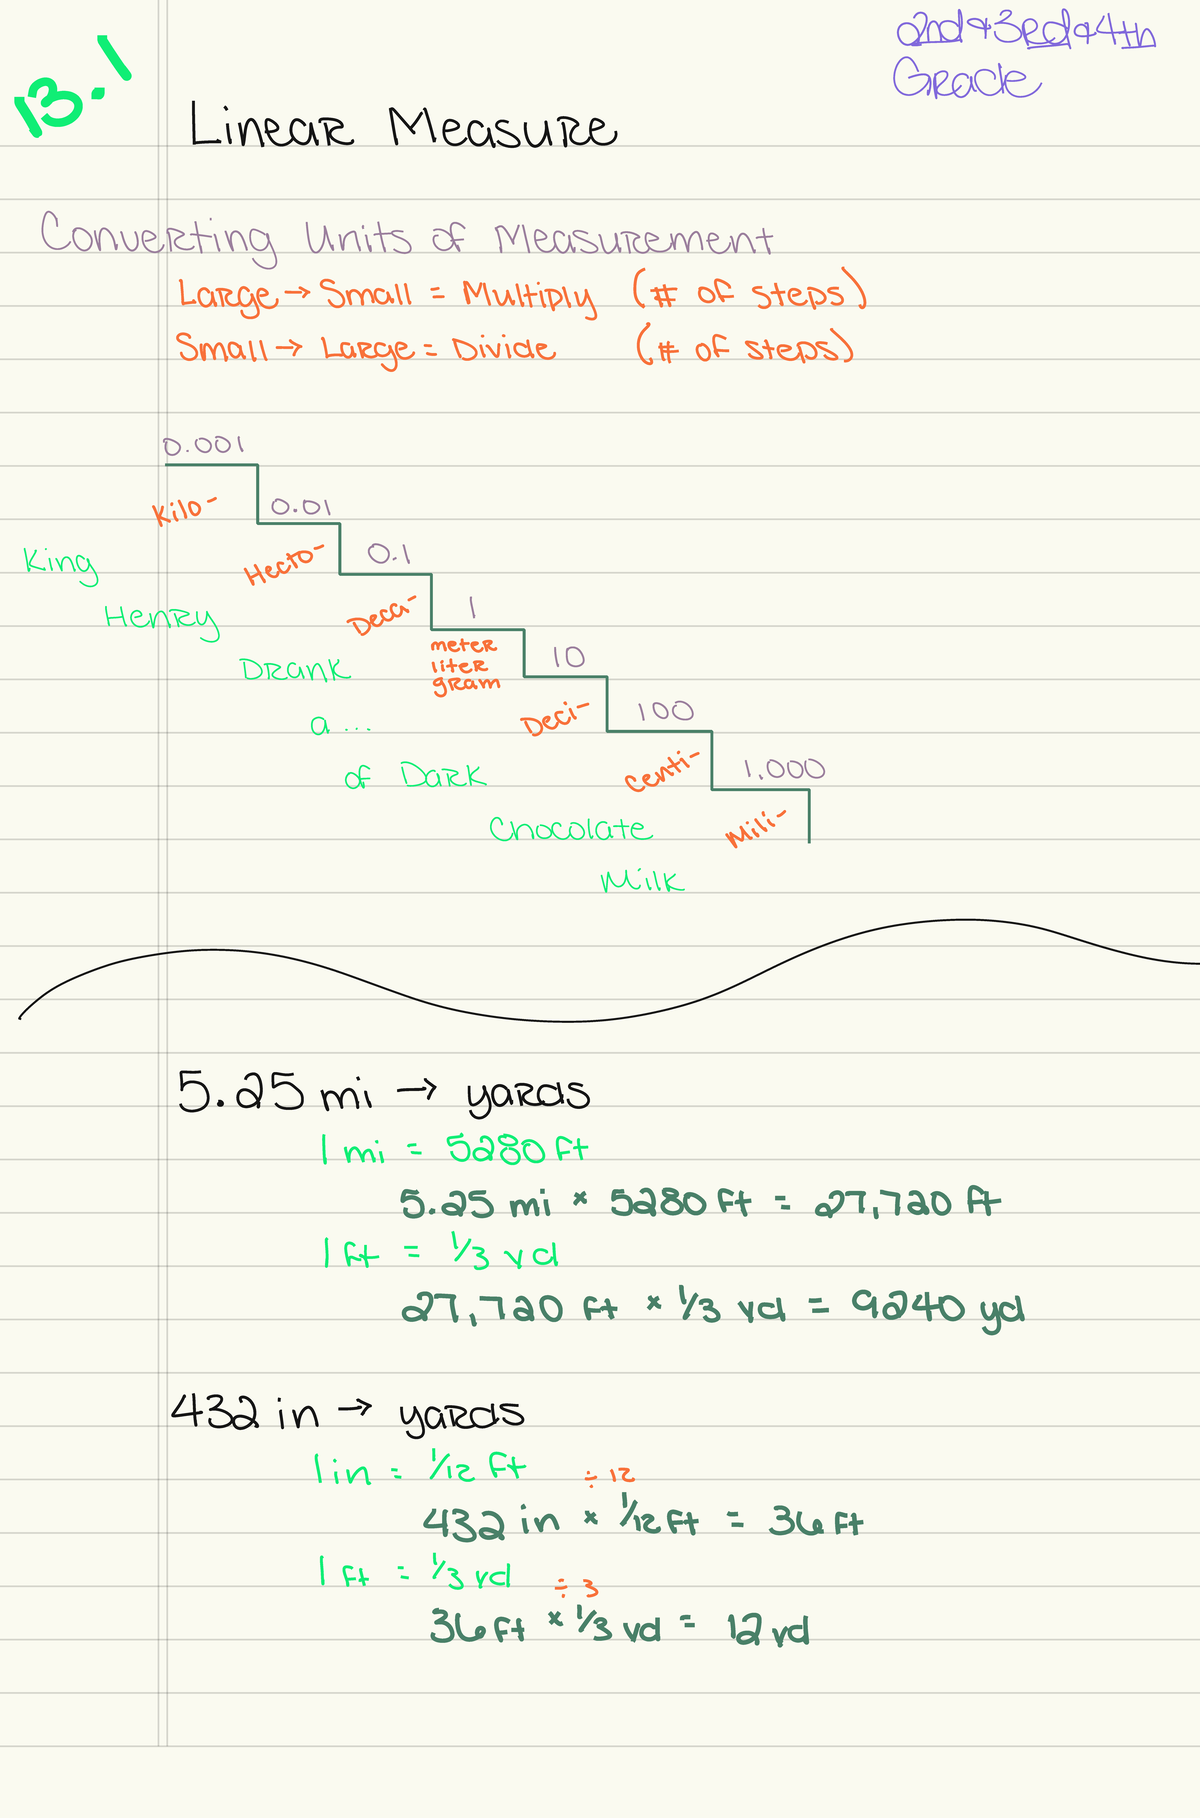 13.1
2nd & 3rd & 4th
Grade
Linear Measure
Converting Units of Measurement
Large → Small = Multiply (# of steps)
Small → Large = Divide (# of steps)
0.001
Kilo-
0.01
King
Hecto-
0.1
Henry
Deca-
1
Drank
meter
liter
gram
10
a ...
Deci-
100
of Dark
Centi-
1,000
Chocolate
Mili-
Milk
5.25 mi → yards
1 mi = 5280 ft
5.25 mi × 5280 ft = 27,720 ft
1 ft = 1/3 yd
27,720 ft × 1/3 yd = 9240 yd
432 in → yards
1 in = 1/12 ft ÷ 12
432 in × 1/12 ft = 36 ft
1 ft = 1/3 yd ÷ 3
36 ft × 1/3 yd = 12 yd